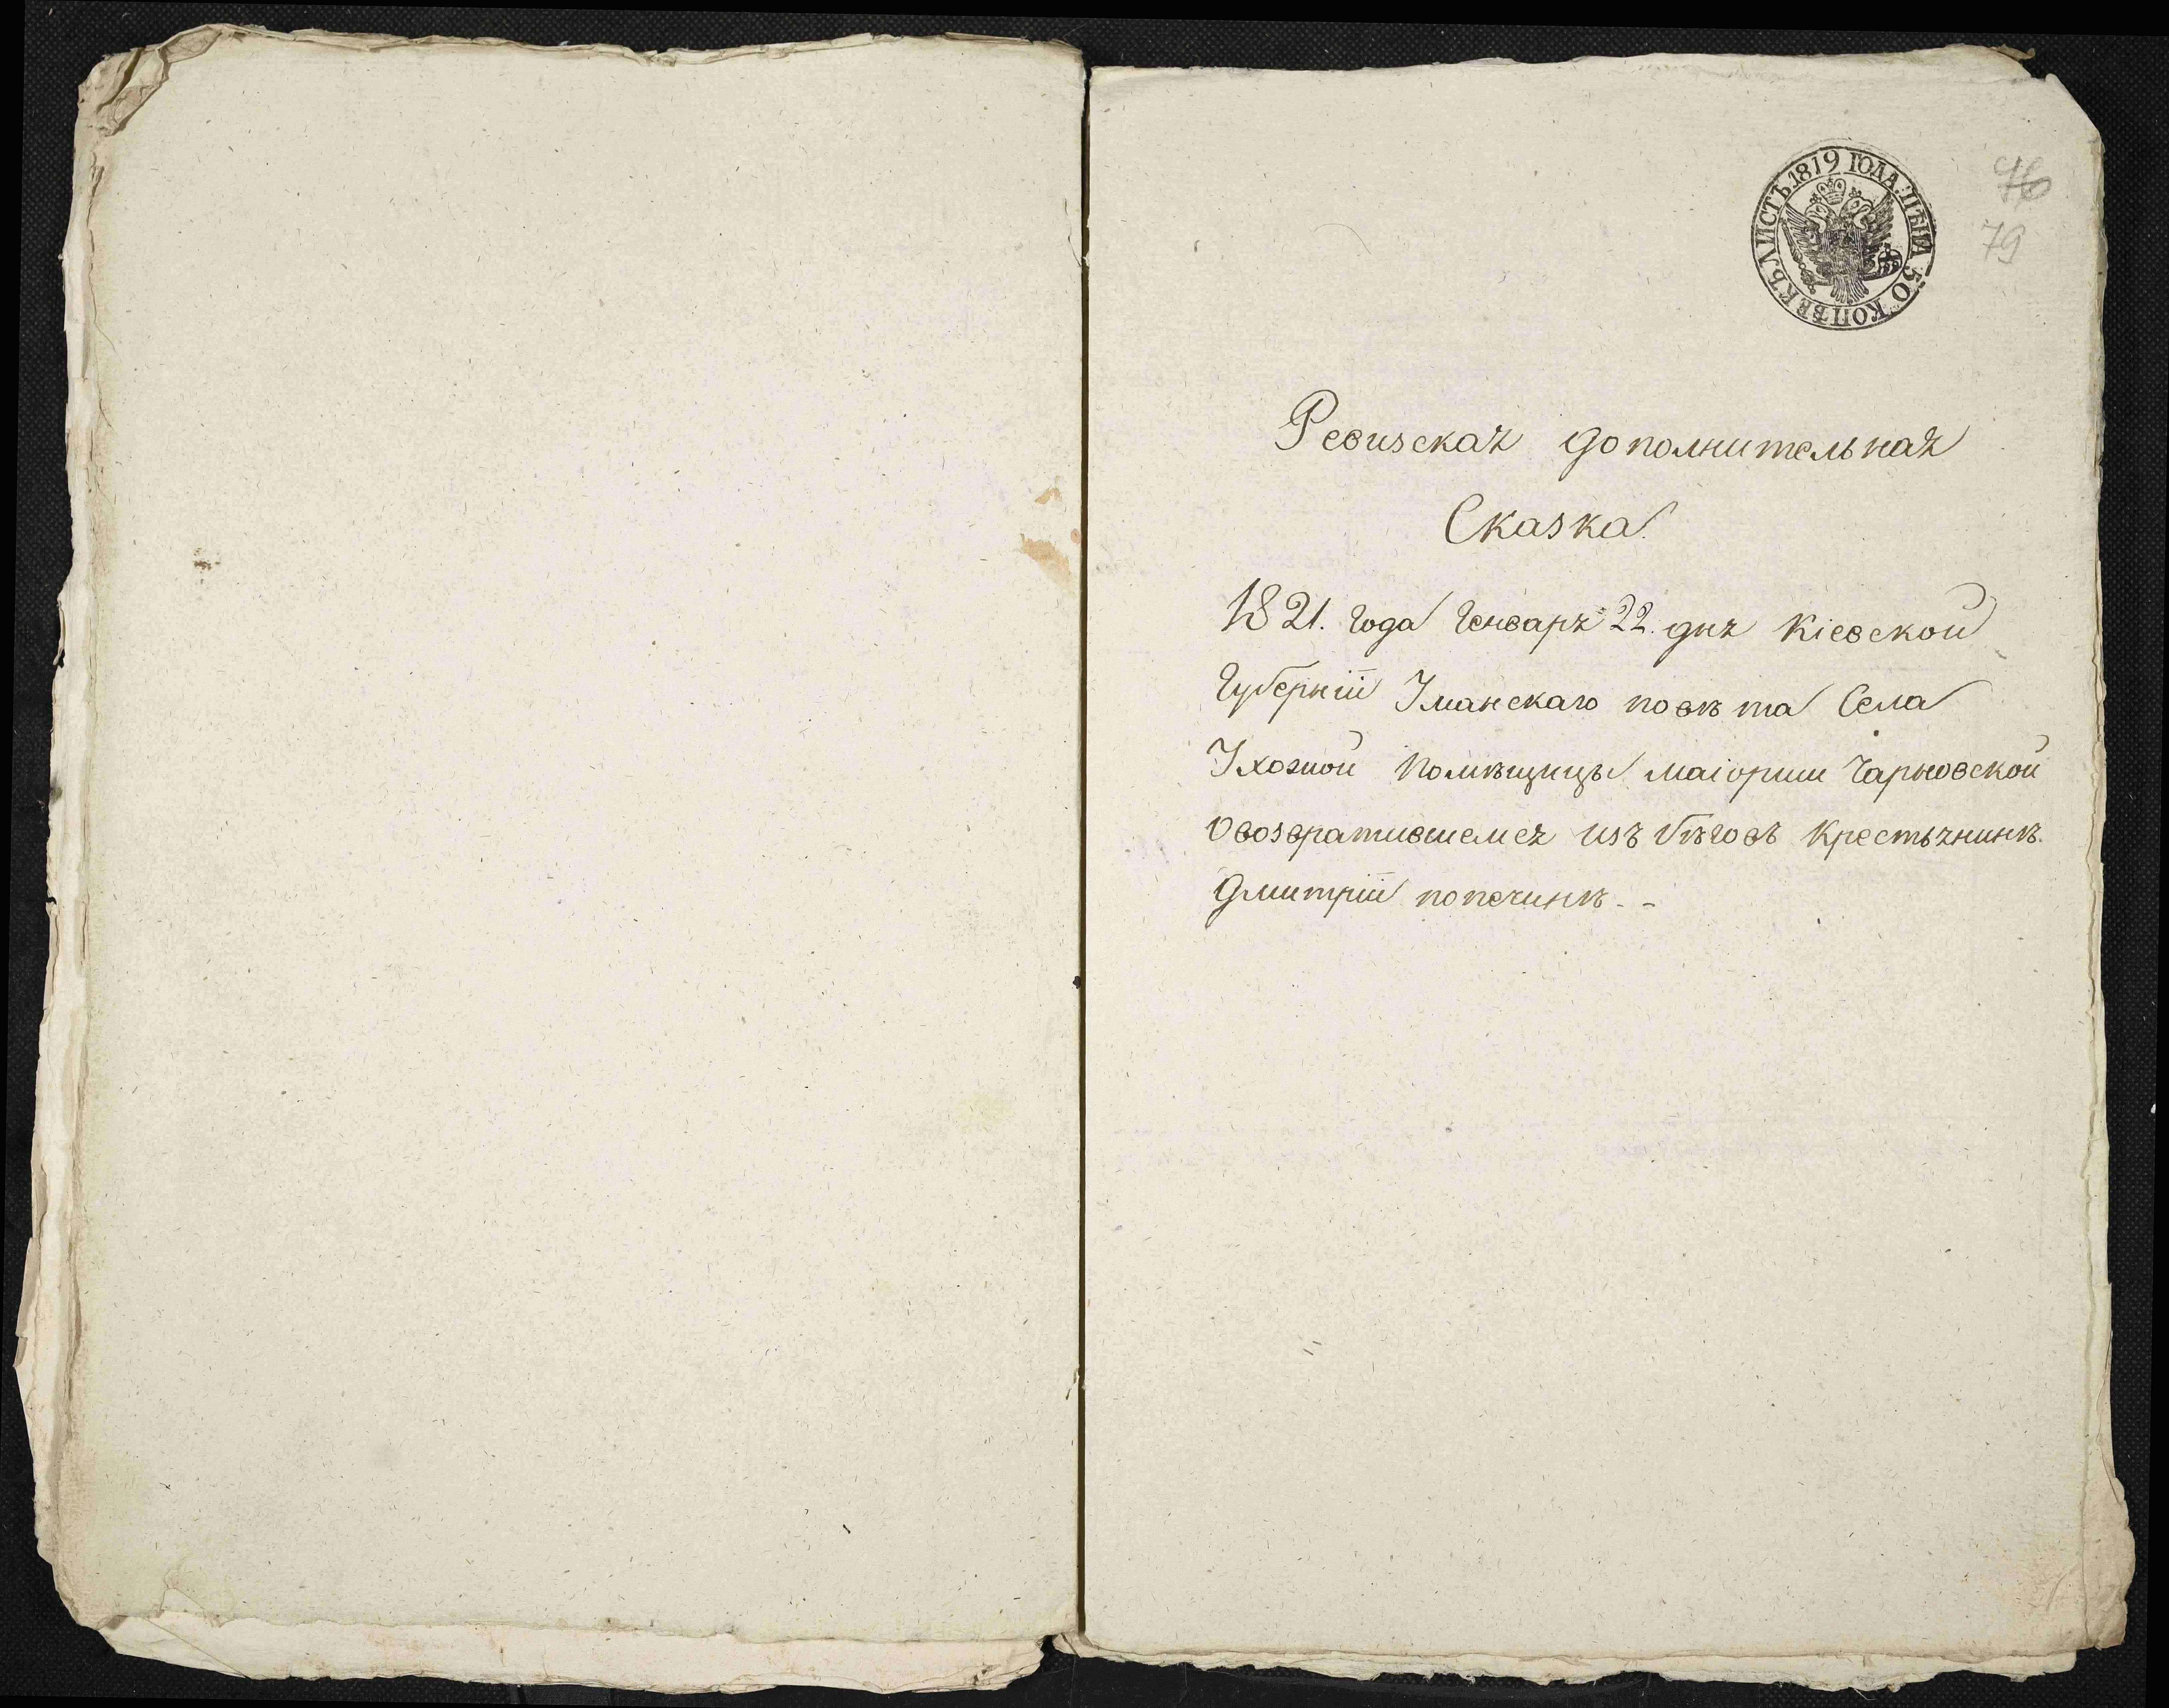 ЛИСТЪ 1819 ГОДА. ЦѢНА 50 КОПѢЕКЪ
79
Ревизская дополнительная
Сказка.
1821. года Генваря 22. дня Кіевской
Губерніи Уманскаго повѣта Села
Ухожой Помѣщицы маіорши Чарновской
овозвратившемся изъ бѣговъ Крестьянинѣ.
Дмитріи попечинѣ. -